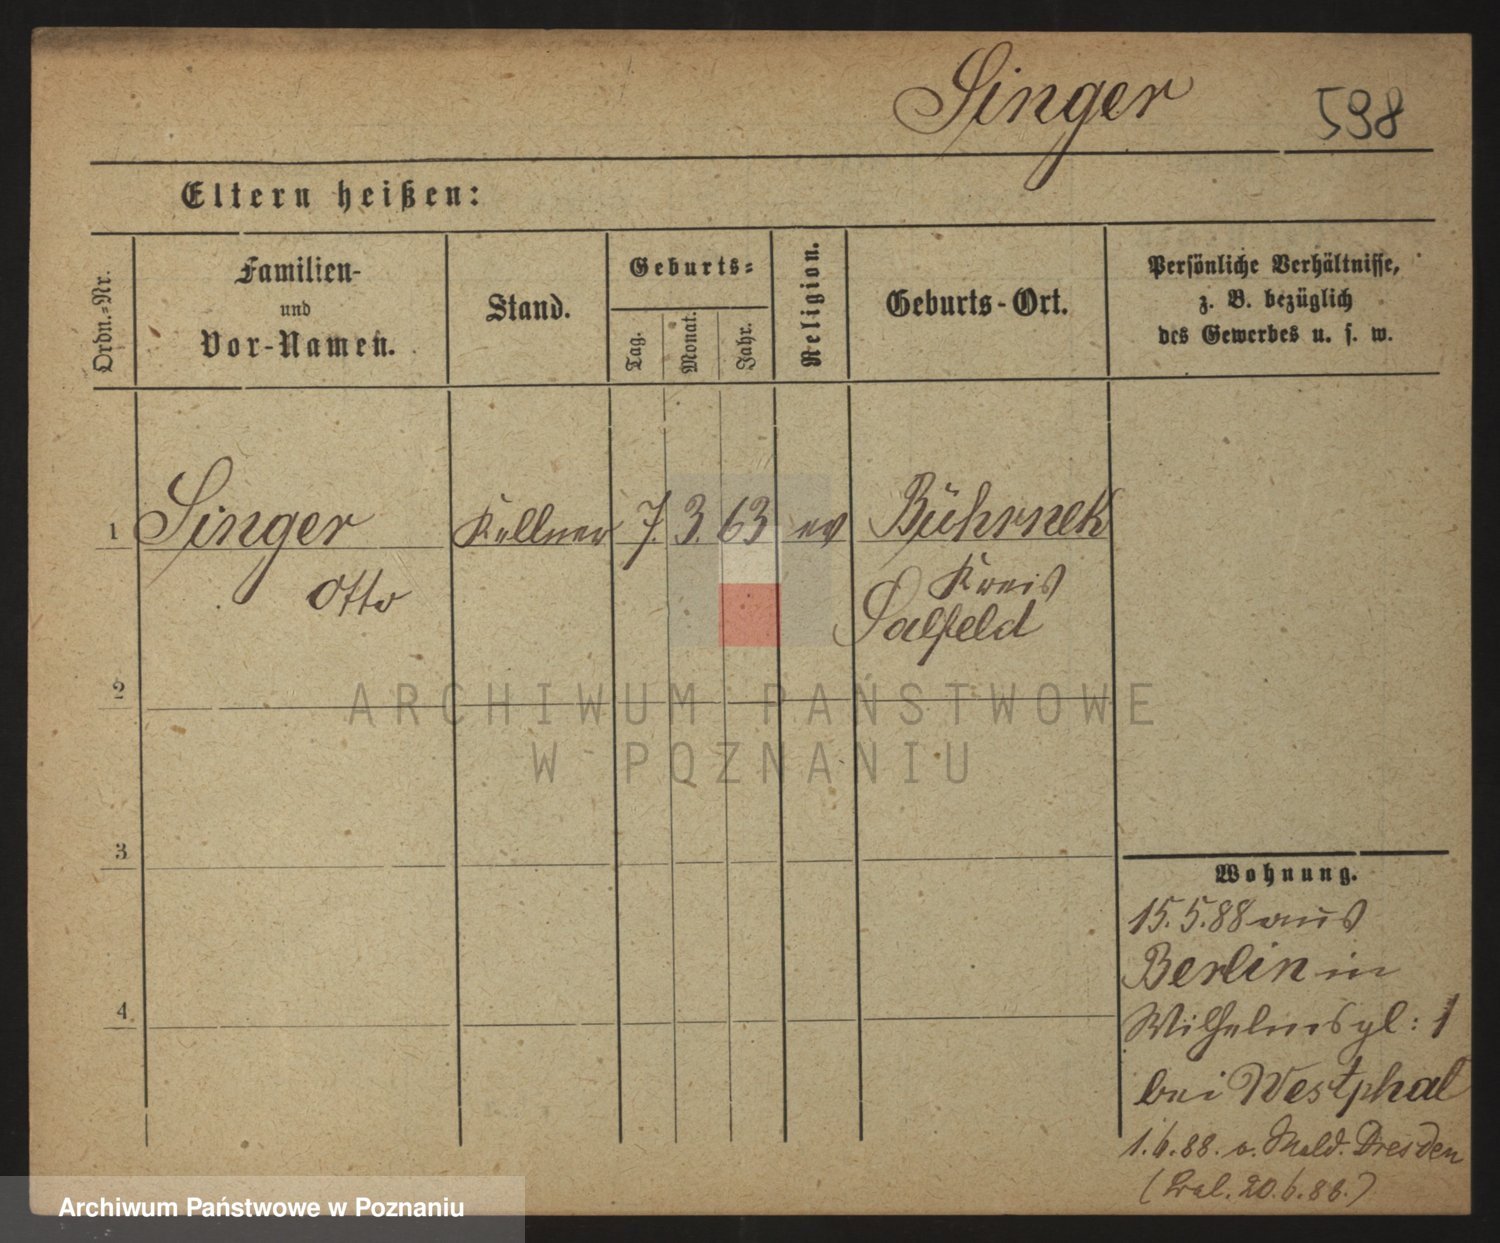 Singer
598
Eltern heißen:
Ordn.-Nr.
Familien-
und
Vor-Namen.
Stand.
Geburts-
Tag.
Monat.
Jahr.
Religion.
Geburts-Ort.
Persönliche Verhältnisse,
z. B. bezüglich
des Gewerbes u. s. w.
1 Singer Kellner 7. 3. 63 ev Bührnek
Otto Kreis
Salfeld
2
3
4
Wohnung.
15.5.88 aus
Berlin in
Wilhelmspl: 1
bei Westphal
1.6.88. o. Meld. Dresden
20.6.88.)
ARCHIWUM PAŃSTWOWE
W POZNANIU
Archiwum Państwowe w Poznaniu